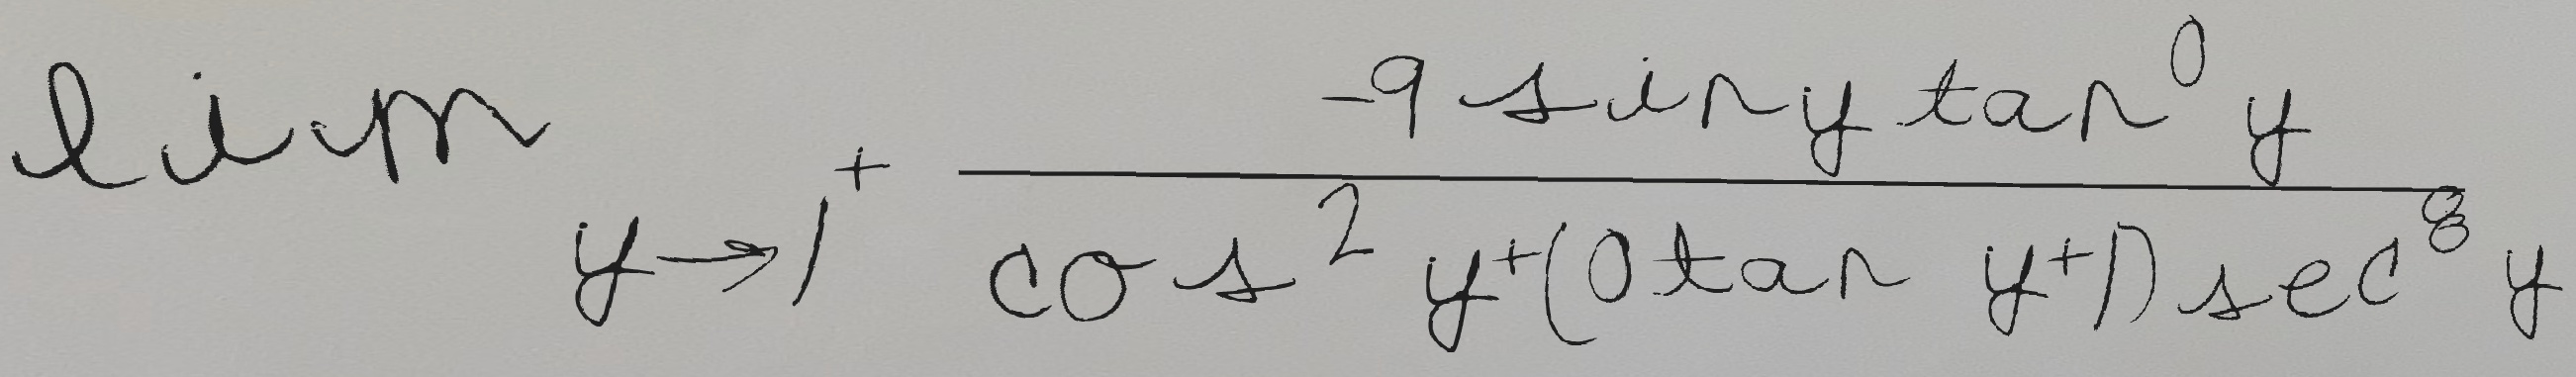 \lim_{y \to 1^+} \frac{-9 \sin y \tan^0 y}{\cos^2 y + (0 \tan y + 1) \sec^8 y}